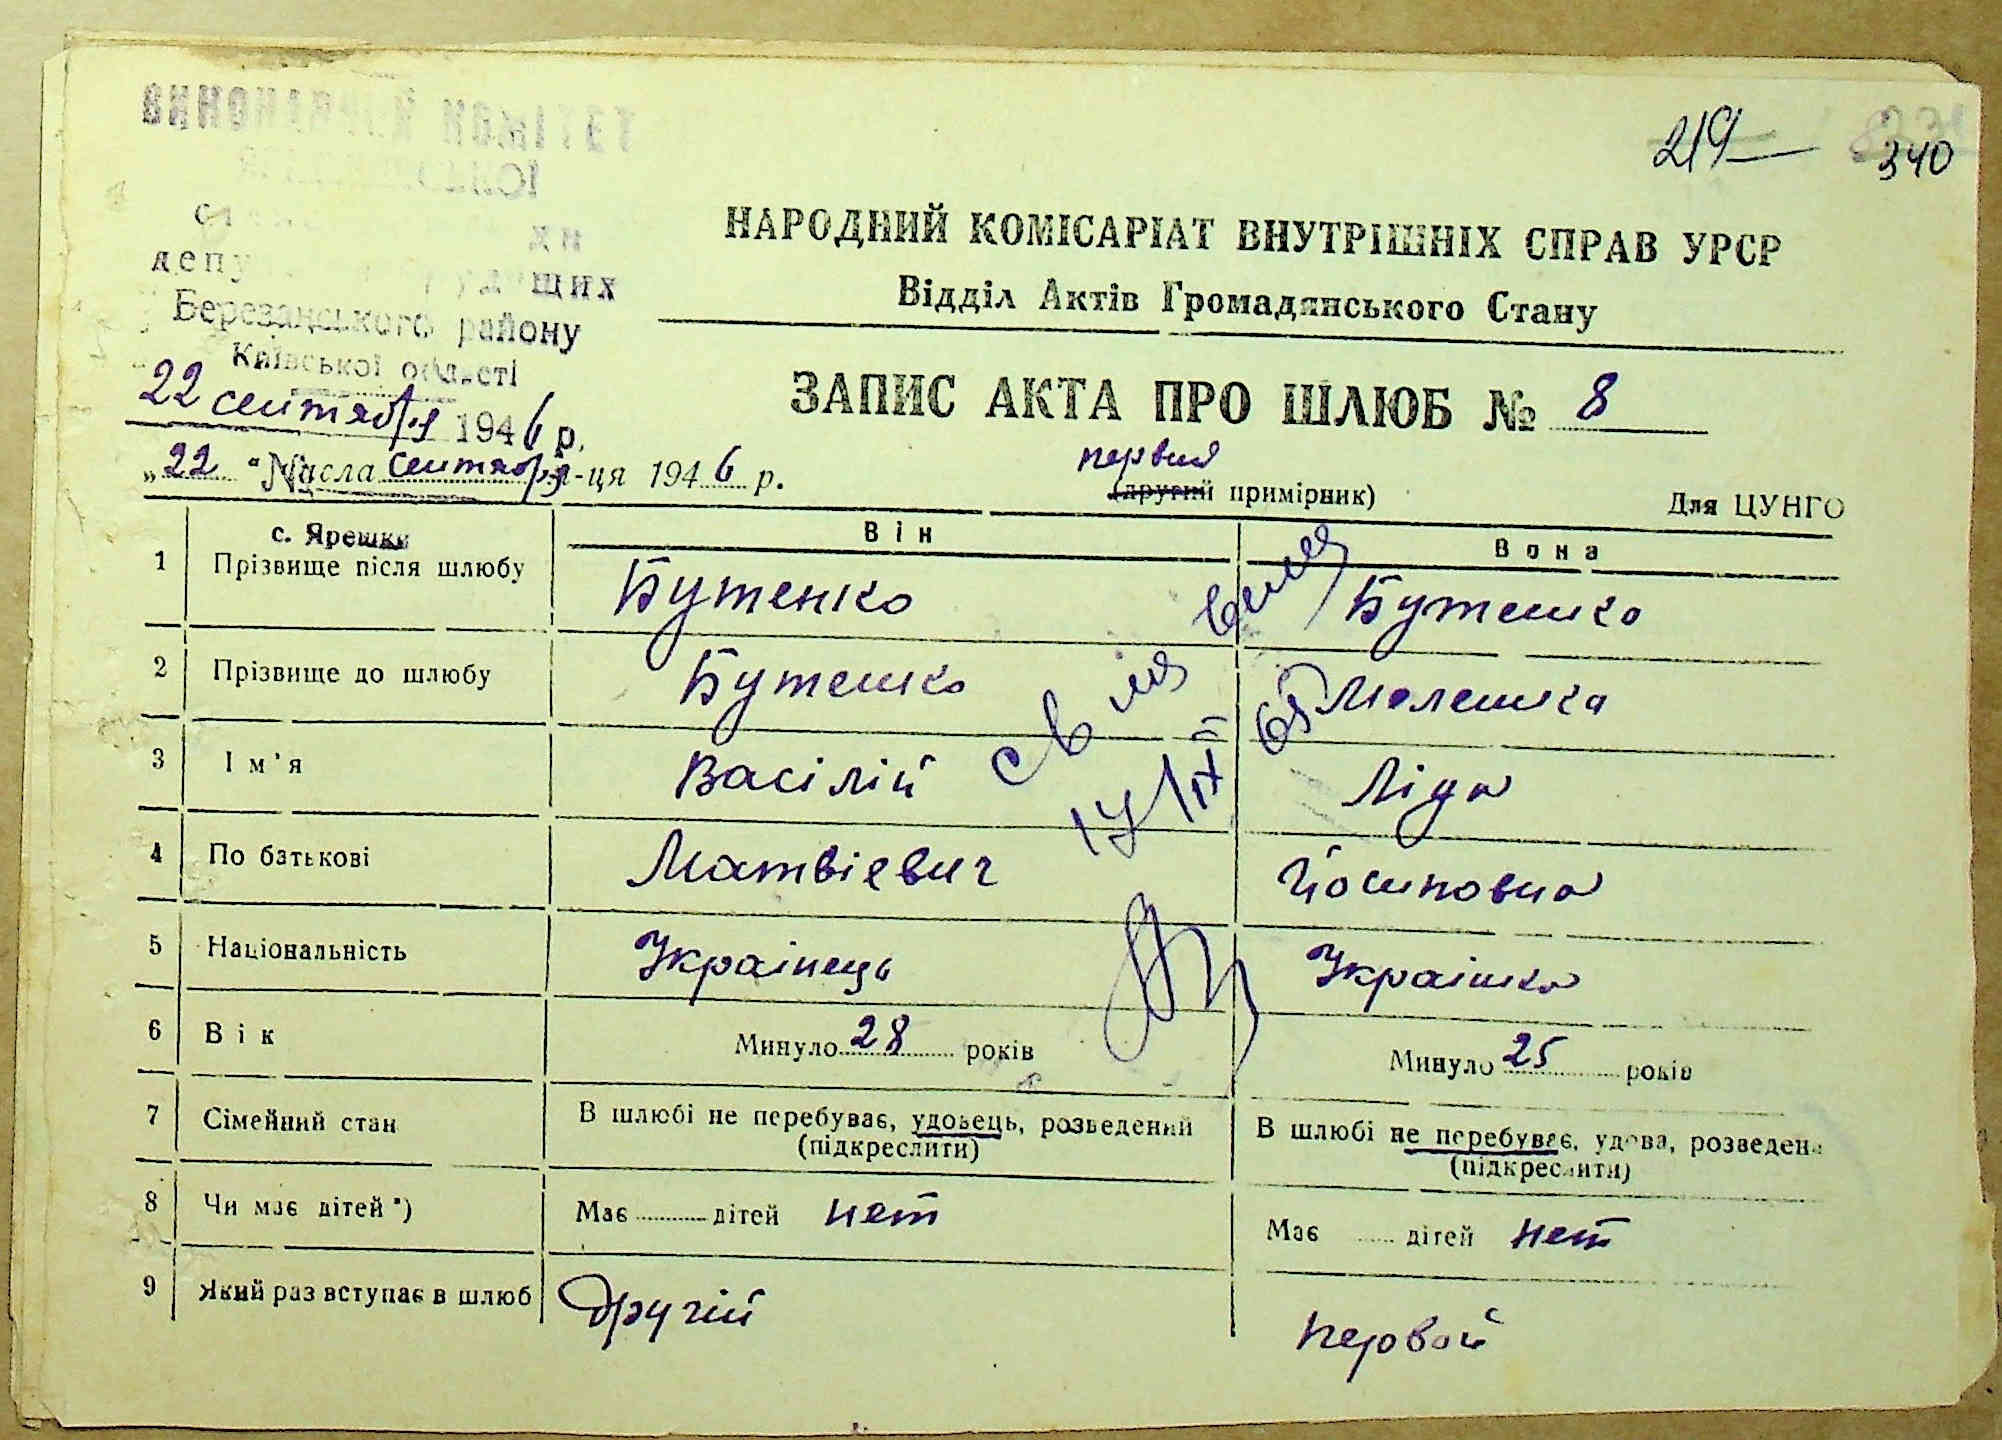 219
340
ВИКОНАВЧИЙ КОМІТЕТ
депу трудящих
Березанського району
Київської області
22 сентября 1946 р.
НАРОДНИЙ КОМІСАРІАТ ВНУТРІШНІХ СПРАВ УРСР
Відділ Актів Громадянського Стану
ЗАПИС АКТА ПРО ШЛЮБ № 8
„22" числа сентября м-ця 1946 р.
первий
(другий примірник)
Для ЦУНГО
с. Ярешки
Він
Вона
1 Прізвище після шлюбу Бутенко Бутенко
2 Прізвище до шлюбу Бутенко Моленка
3 Ім'я Васілій Ліда
4 По батькові Матвієвич Йосиповна
5 Національність Українець Українка
6 Вік Минуло 28 років Минуло 25 років
7 Сімейний стан В шлюбі не перебуває, удовець, розведений В шлюбі не перебуває, удова, розведена
(підкреслити) (підкреслити)
8 Чи має дітей*) Має дітей нет Має дітей нет
9 Який раз вступає в шлюб другій первой